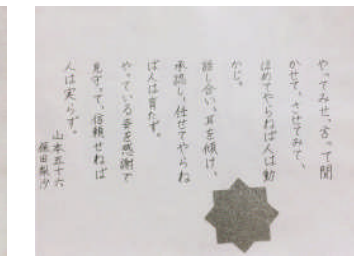 やってみせ、言って聞
かせて、させてみて、
ほめてやらねば人は動
かじ。
話し合い、耳を傾け、
承認し、任せてやらね
ば人は育たず。
やっている姿を感謝で
見守って、信頼せねば
人は実らず。
山本五十六
保田梨沙